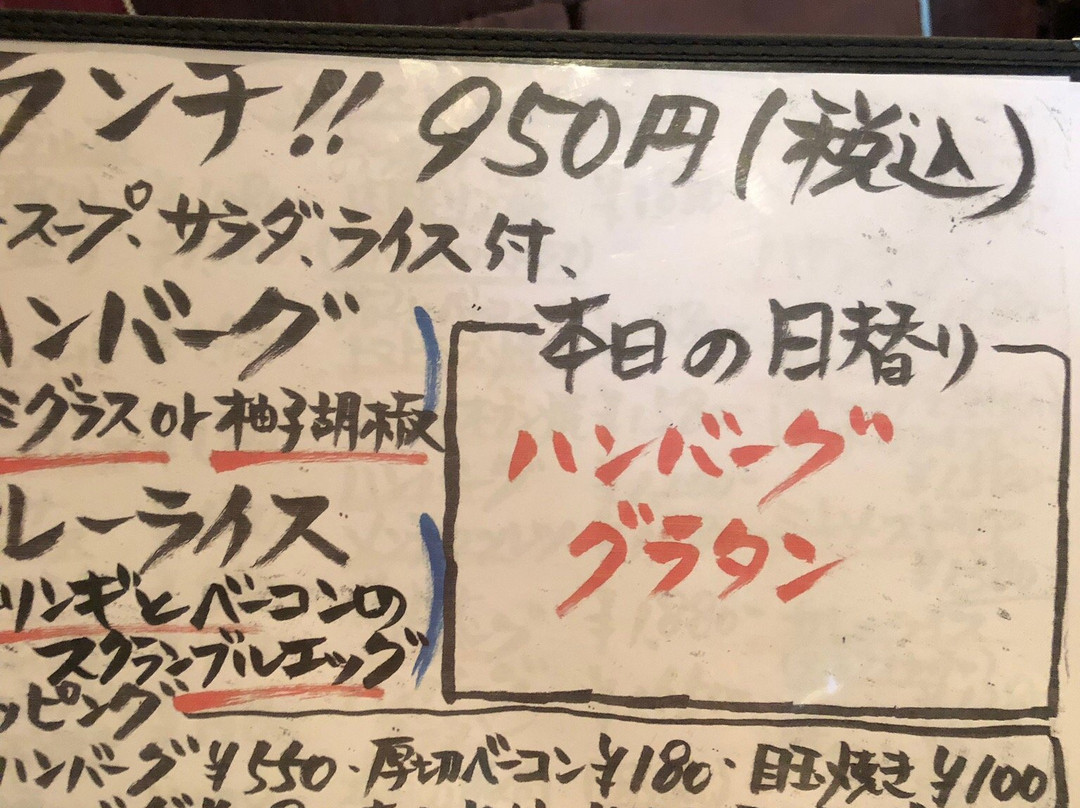 ランチ!! 950円(税込)
スープ、サラダ、ライス付、
ハンバーグ
ミグラス or 柚子胡椒
レーライス
リンギとベーコンの
スクランブルエッグ
ッピング
本日の日替り
ハンバーグ
グラタン
ハンバーグ¥550・厚切ベーコン¥180・目玉焼き¥100